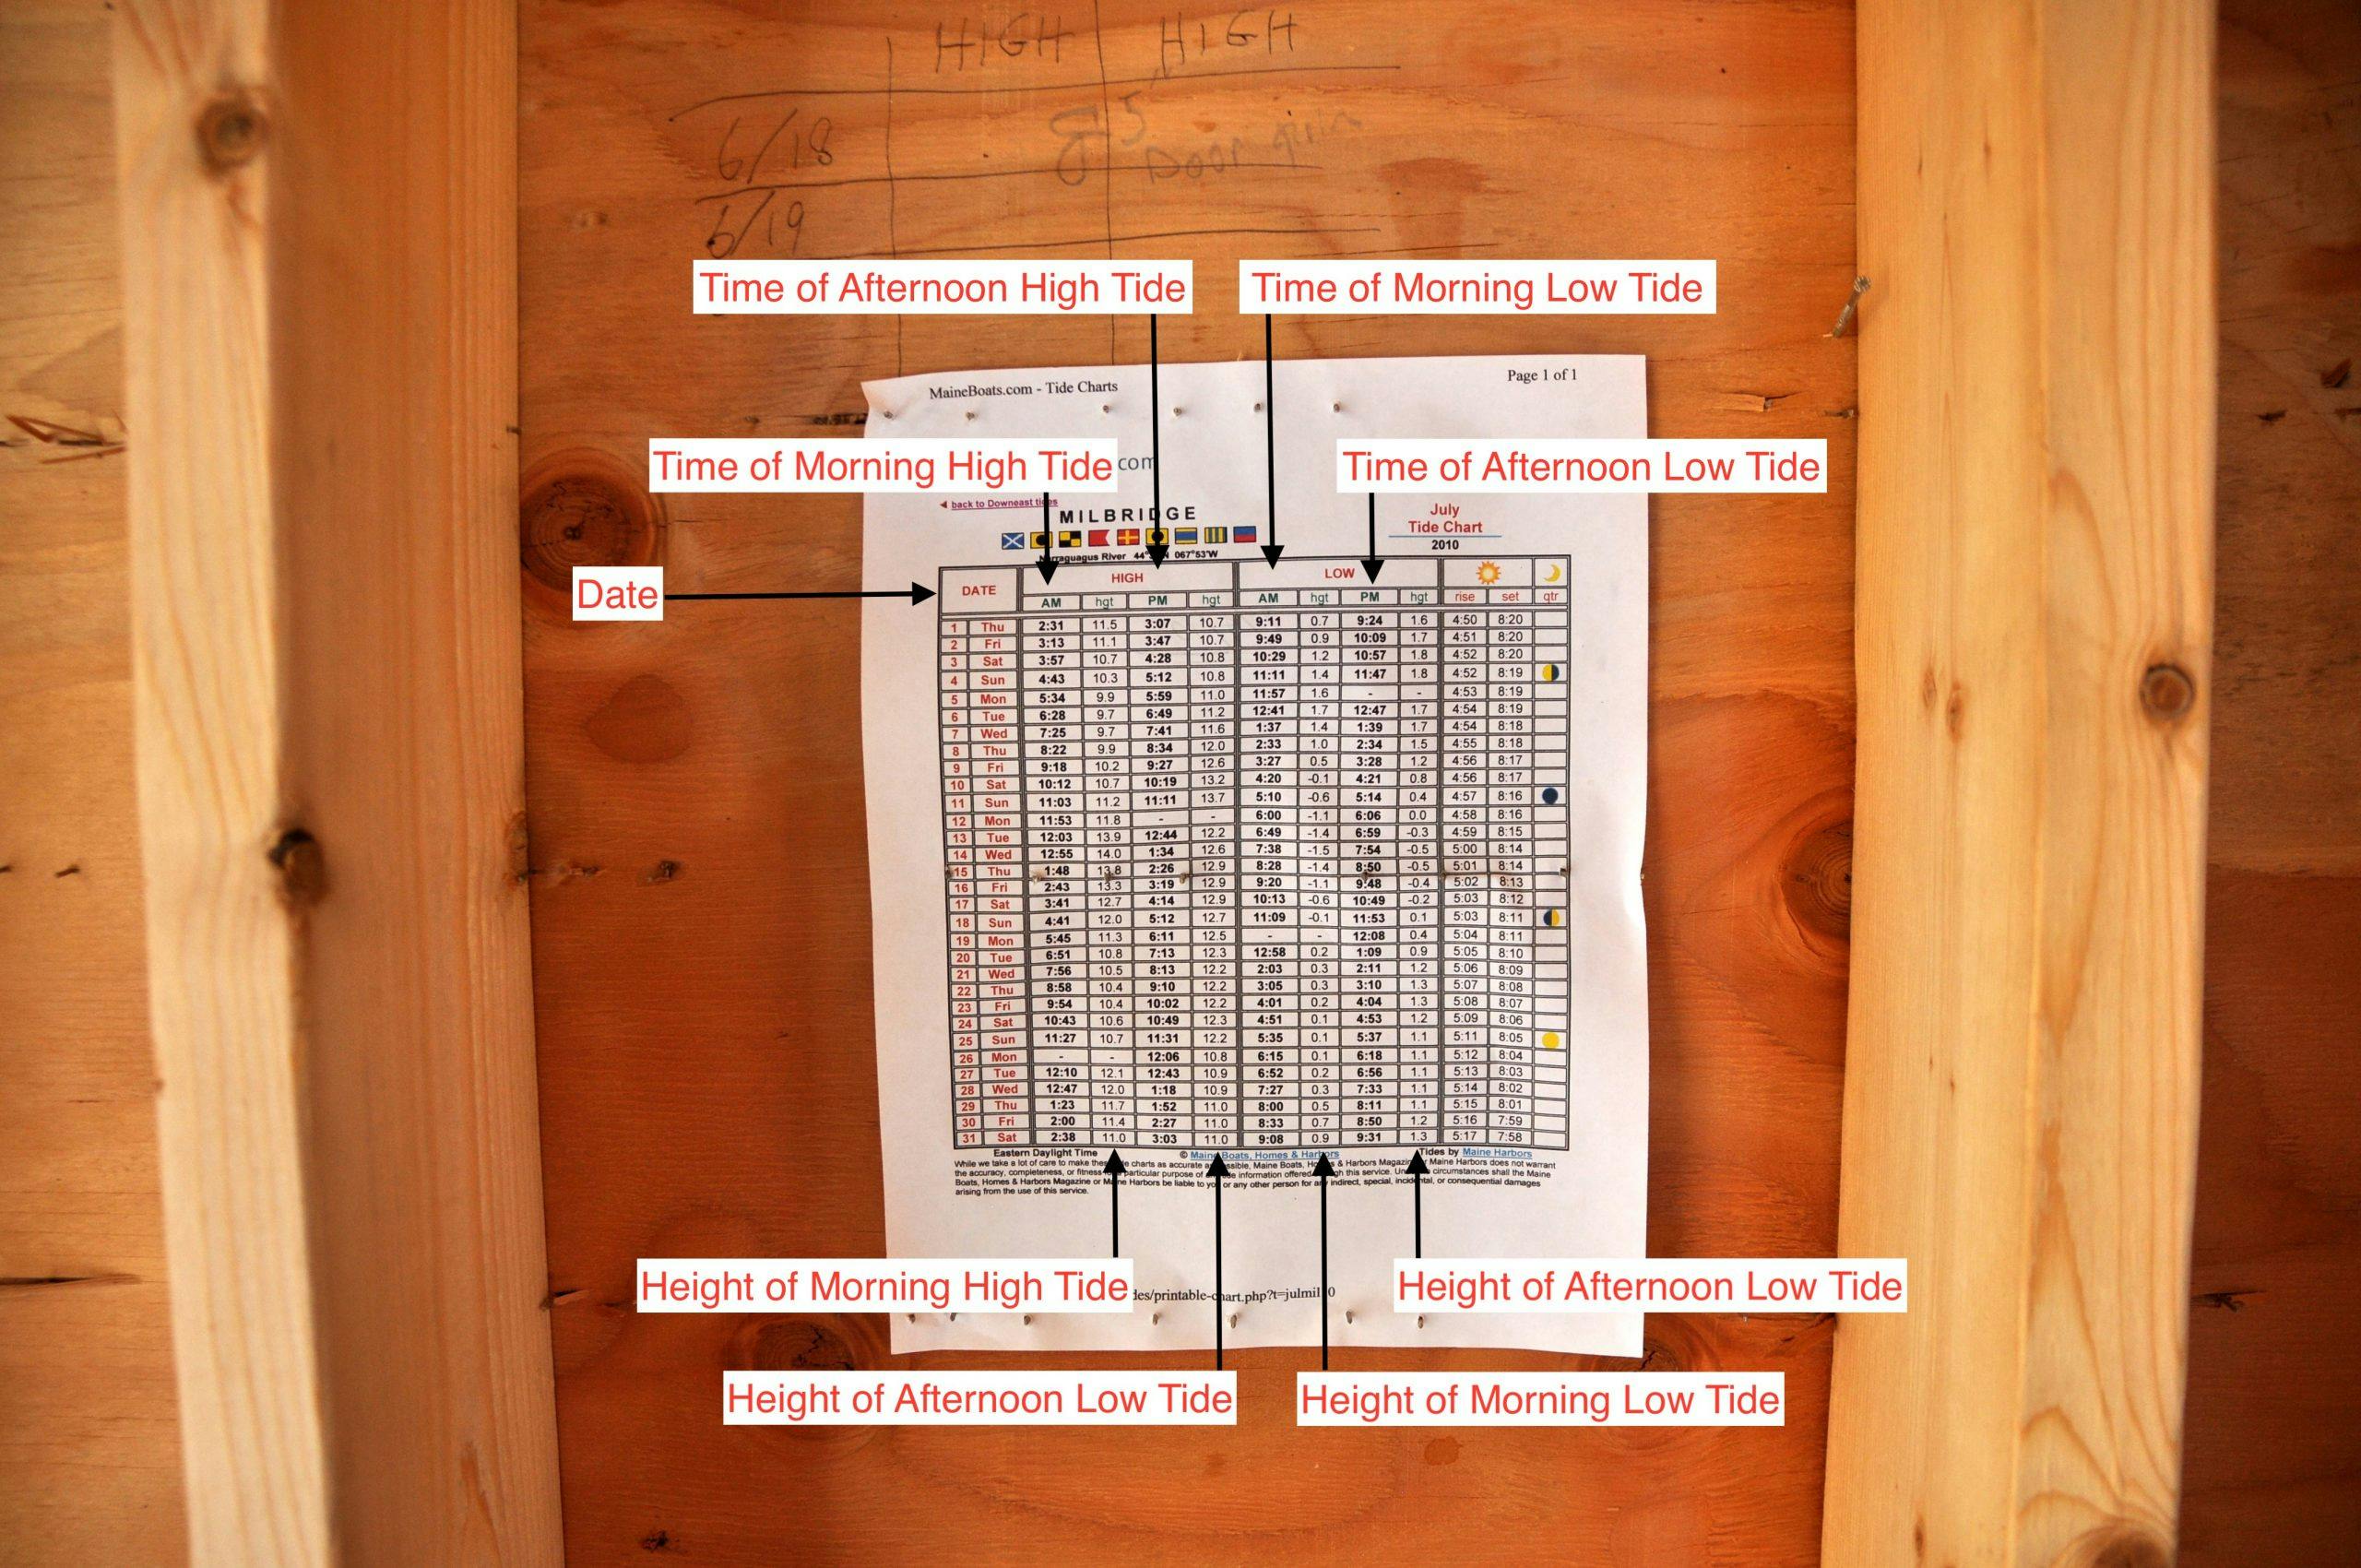 HIGH HIGH
6/18 5 Door
6/19
Time of Afternoon High Tide Time of Morning Low Tide
MaineBoats.com - Tide Charts Page 1 of 1
Time of Morning High Tide com Time of Afternoon Low Tide
back to Downeast tides
MILBRIDGE
July
Tide Chart
2010
Narraguagus River 44° N 067°53'W
Date
DATE HIGH LOW
AM hgt PM hgt AM hgt PM hgt rise set qtr
1 Thu 2:31 11.5 3:07 10.7 9:11 0.7 9:24 1.6 4:50 8:20
2 Fri 3:13 11.1 3:47 10.7 9:49 0.9 10:09 1.7 4:51 8:20
3 Sat 3:57 10.7 4:28 10.8 10:29 1.2 10:57 1.8 4:52 8:20
4 Sun 4:43 10.3 5:12 10.8 11:11 1.4 11:47 1.8 4:52 8:19
5 Mon 5:34 9.9 5:59 11.0 11:57 1.6 - - 4:53 8:19
6 Tue 6:28 9.7 6:49 11.2 12:41 1.7 12:47 1.7 4:54 8:19
7 Wed 7:25 9.7 7:41 11.6 1:37 1.4 1:39 1.7 4:54 8:18
8 Thu 8:22 9.9 8:34 12.0 2:33 1.0 2:34 1.5 4:55 8:18
9 Fri 9:18 10.2 9:27 12.6 3:27 0.5 3:28 1.2 4:56 8:17
10 Sat 10:12 10.7 10:19 13.2 4:20 -0.1 4:21 0.8 4:56 8:17
11 Sun 11:03 11.2 11:11 13.7 5:10 -0.6 5:14 0.4 4:57 8:16
12 Mon 11:53 11.8 - - 6:00 -1.1 6:06 0.0 4:58 8:16
13 Tue 12:03 13.9 12:44 12.2 6:49 -1.4 6:59 -0.3 4:59 8:15
14 Wed 12:55 14.0 1:34 12.6 7:38 -1.5 7:54 -0.5 5:00 8:14
15 Thu 1:48 13.8 2:26 12.9 8:28 -1.4 8:50 -0.5 5:01 8:14
16 Fri 2:43 13.3 3:19 12.9 9:20 -1.1 9:48 -0.4 5:02 8:13
17 Sat 3:41 12.7 4:14 12.9 10:13 -0.6 10:49 -0.2 5:03 8:12
18 Sun 4:41 12.0 5:12 12.7 11:09 -0.1 11:53 0.1 5:03 8:11
19 Mon 5:45 11.3 6:11 12.5 - - 12:08 0.4 5:04 8:11
20 Tue 6:51 10.8 7:13 12.3 12:58 0.2 1:09 0.9 5:05 8:10
21 Wed 7:56 10.5 8:13 12.2 2:03 0.3 2:11 1.2 5:06 8:09
22 Thu 8:58 10.4 9:10 12.2 3:05 0.3 3:10 1.3 5:07 8:08
23 Fri 9:54 10.4 10:02 12.2 4:01 0.2 4:04 1.3 5:08 8:07
24 Sat 10:43 10.6 10:49 12.3 4:51 0.1 4:53 1.2 5:09 8:06
25 Sun 11:27 10.7 11:31 12.2 5:35 0.1 5:37 1.1 5:11 8:05
26 Mon - - 12:06 10.8 6:15 0.1 6:18 1.1 5:12 8:04
27 Tue 12:10 12.1 12:43 10.9 6:52 0.2 6:56 1.1 5:13 8:03
28 Wed 12:47 12.0 1:18 10.9 7:27 0.3 7:33 1.1 5:14 8:02
29 Thu 1:23 11.7 1:52 11.0 8:00 0.5 8:11 1.1 5:15 8:01
30 Fri 2:00 11.4 2:27 11.0 8:33 0.7 8:50 1.2 5:16 7:59
31 Sat 2:38 11.0 3:03 11.0 9:08 0.9 9:31 1.3 5:17 7:58
Eastern Daylight Time © Maine Boats, Homes & Harbors Tides by Maine Harbors
While we take a lot of care to make these tide charts as accurate as possible, Maine Boats, Homes & Harbors Magazine or Maine Harbors does not warrant
the accuracy, completeness, or fitness for a particular purpose of any the information offered through this service. Under no circumstances shall the Maine
Boats, Homes & Harbors Magazine or Maine Harbors be liable to you or any other person for any indirect, special, incidental, or consequential damages
arising from the use of this service.
Height of Morning High Tide des/printable-chart.php?t=julmil10 Height of Afternoon Low Tide
Height of Afternoon Low Tide Height of Morning Low Tide